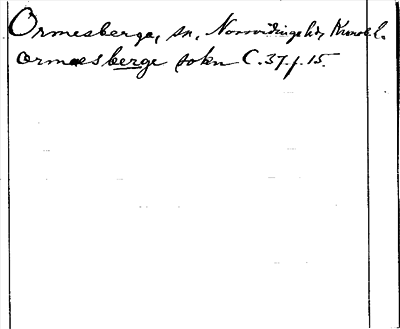 Ormesberga, sn, Norrvidinge hd, Kronob. l.
ormæsberge sokn C. 37. f. 15.